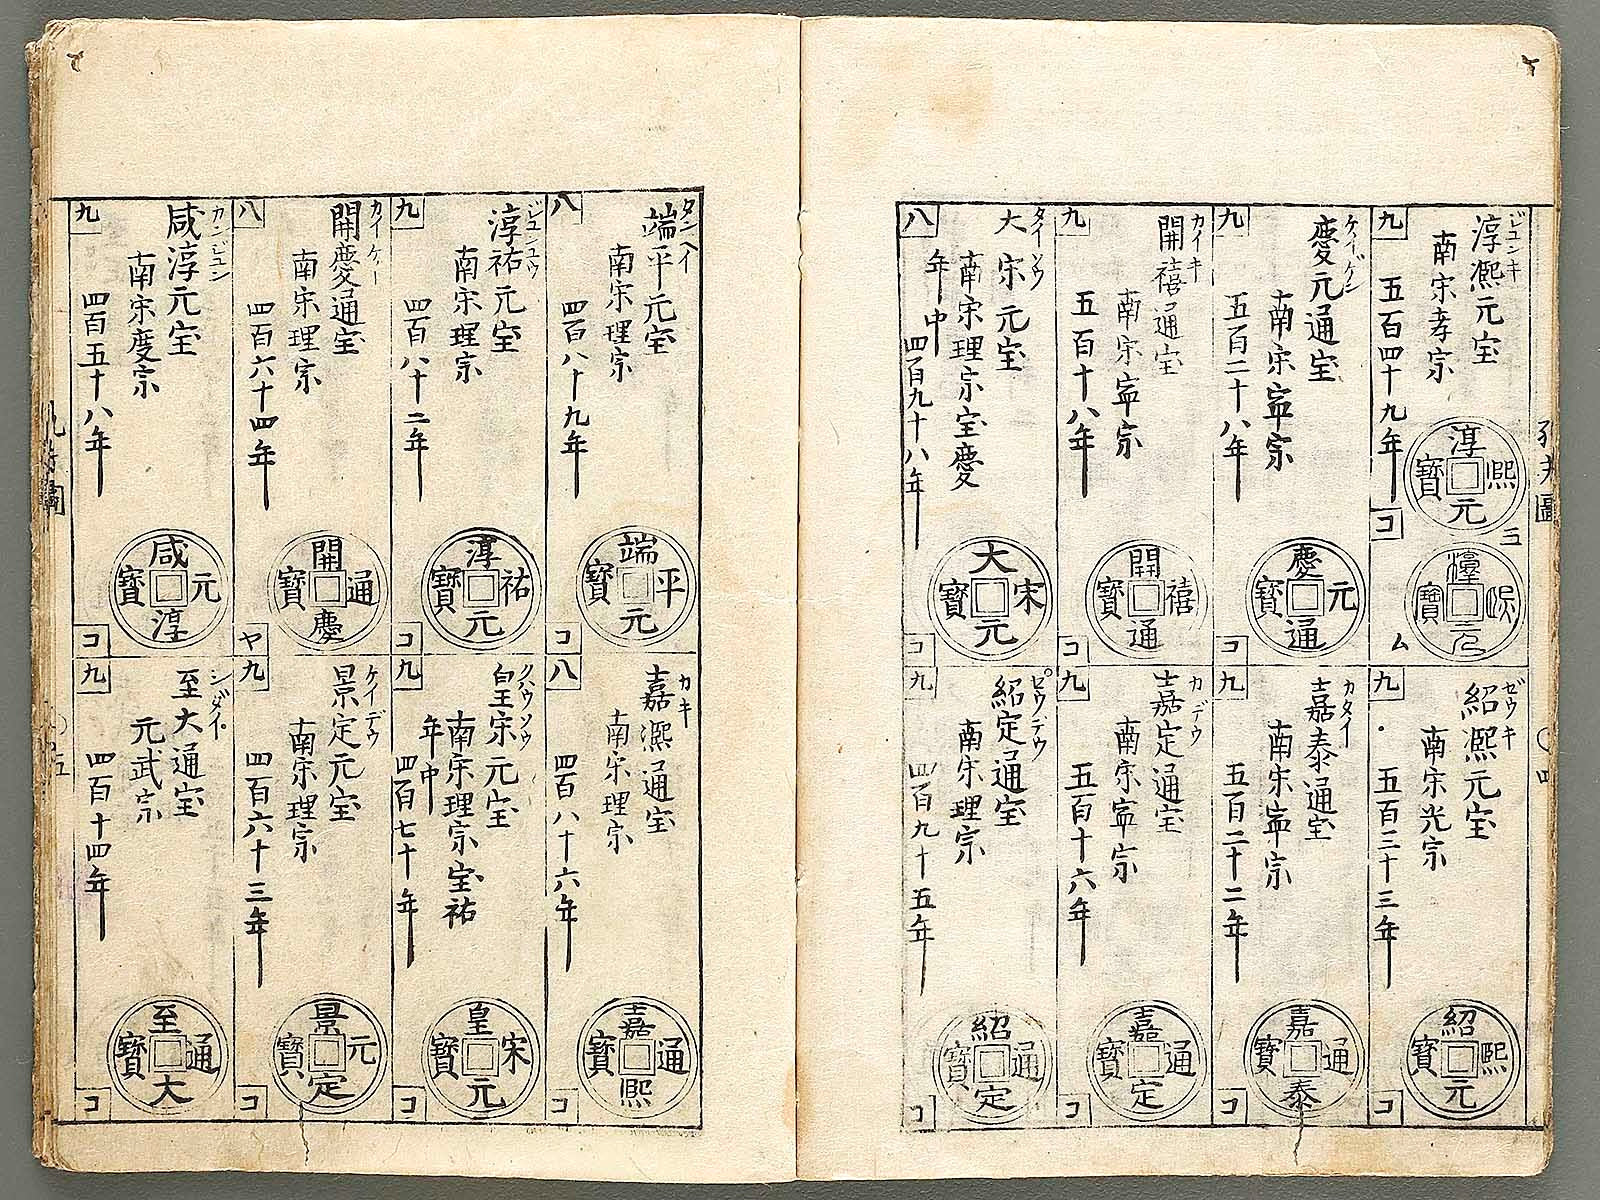 九
ジユンキ
淳熈元宝
南宋孝宗
五百四十九年
淳熙元寳
コ
ム
九
ゼウキ
紹熈元宝
南宋光宗
五百三十三年
紹熙元寳
コ
九
ケイゲン
慶元通宝
南宋寧宗
五百二十八年
慶元通寳
コ
九
カタイ
嘉泰通宝
南宋寧宗
五百二十二年
嘉泰通寳
コ
九
カイキ
開禧通宝
南宋寧宗
五百十八年
開禧通寳
コ
九
カデウ
嘉定通宝
南宋寧宗
五百十六年
嘉定通寳
コ
八
タイソウ
大宋元宝
南宋理宗宝慶
年中
四百九十八年
大宋元寳
コ
九
紹定通宝
南宋理宗
四百九十五年
紹定通寳
コ
八
タンヘイ
端平元宝
南宋理宗
四百八十九年
端平元寳
コ
八
カキ
嘉熈通宝
南宋理宗
四百八十六年
嘉熙通寳
コ
九
ジユンユウ
淳祐元宝
南宋理宗
四百八十二年
淳祐元寳
コ
九
皇宋元宝
南宋理宗宝祐
年中
四百七十年
皇宋元寳
コ
八
カイケー
開慶通宝
南宋理宗
四百六十四年
開慶通寳
ヤ
九
ケイデウ
景定元宝
南宋理宗
四百六十三年
景定元寳
コ
九
カンジユン
咸淳元宝
南宋度宗
四百五十八年
咸淳元寳
コ
九
シダイ
至大通宝
元武宗
四百十四年
至大通寳
コ